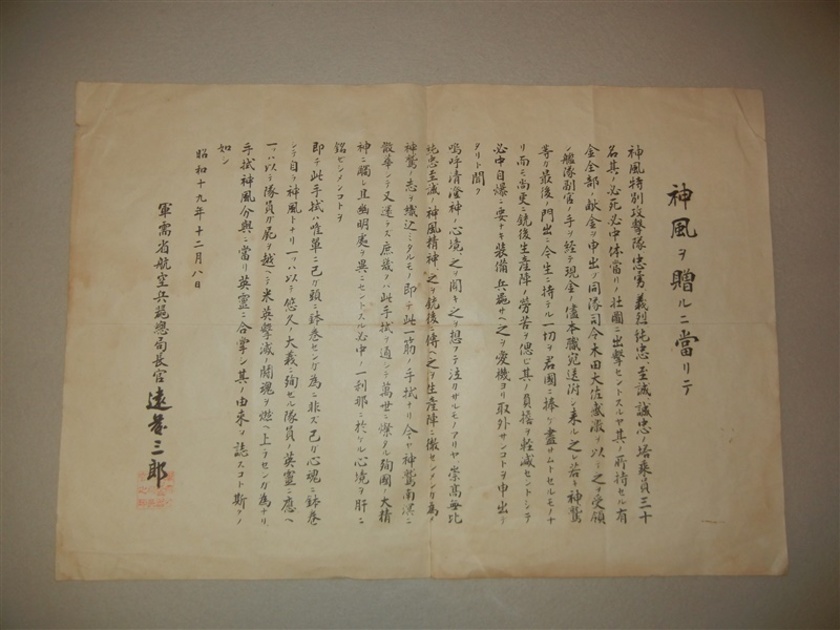 神風ヲ贈ルニ當リテ
神風特別攻撃隊忠勇、義烈、純忠、至誠、誠忠ノ搭乗員三十
名其ノ必死必中体當リノ壮圖ニ出撃セントスルヤ其ノ所持セル有
金全部ノ献金ヲ申出ノ同隊司令木田大佐感激ヲ以之ヲ受領
シ艦隊副官ノ手ヲ経テ現金ノ儘本職宛送附シ来ル之レ若キ神鷲
等ガ最後ノ門出ニ今生ニ持テル一切ヲ君國ニ捧ゲ盡サムトセルモノナ
リ而モ尚更ニ銃後生産陣ノ労苦ヲ偲ビ其ノ負擔ヲ軽減セントシテ
必中自爆ニ要ナキ装備兵器サヘ之ヲ愛機ヨリ取外サンコトヲ申出デ
タリト聞ク
嗚呼清澄神ノ心境、之ヲ聞キ之ヲ想フテ泣カザルモノアリヤ崇高無比
純忠至誠ノ神風精神、之ヲ銃後ニ傳ヘ之ヲ生産陣ニ徹センメンガ為メ
神鷲ノ志ヲ織込ミタルモノ即チ此一筋ノ手拭ナリ今ヤ神鷲南溟ニ
散華シテ又還ラズ庶幾クハ此手拭ヲ通シテ萬世ニ燦タル殉國ノ大精
神ニ觸レ且幽明處ヲ異ニセントスル必中ノ一刹那ニ於ケル心境ヲ肝ニ
銘ゼンメンコトヲ
即チ此手拭ハ唯單ニ己ガ頭ニ鉢巻センガ為ニ非ズ己ガ心魂ニ鉢巻
シテ自ラ神風トナリ一ツハ以テ悠久ノ大義ニ殉セル隊員ノ英霊ニ應ヘ
一ツハ以テ隊員ガ屍ヲ越ヘテ米英撃滅ノ闘魂ヲ燃ヘ上ラセンガ為ナリ
手拭神風分與ニ當リ英霊ニ合掌シ其ノ由来ヲ誌スコト斯クノ
如シ
昭和十九年十二月八日
軍需省航空兵器總局長官 遠藤三郎